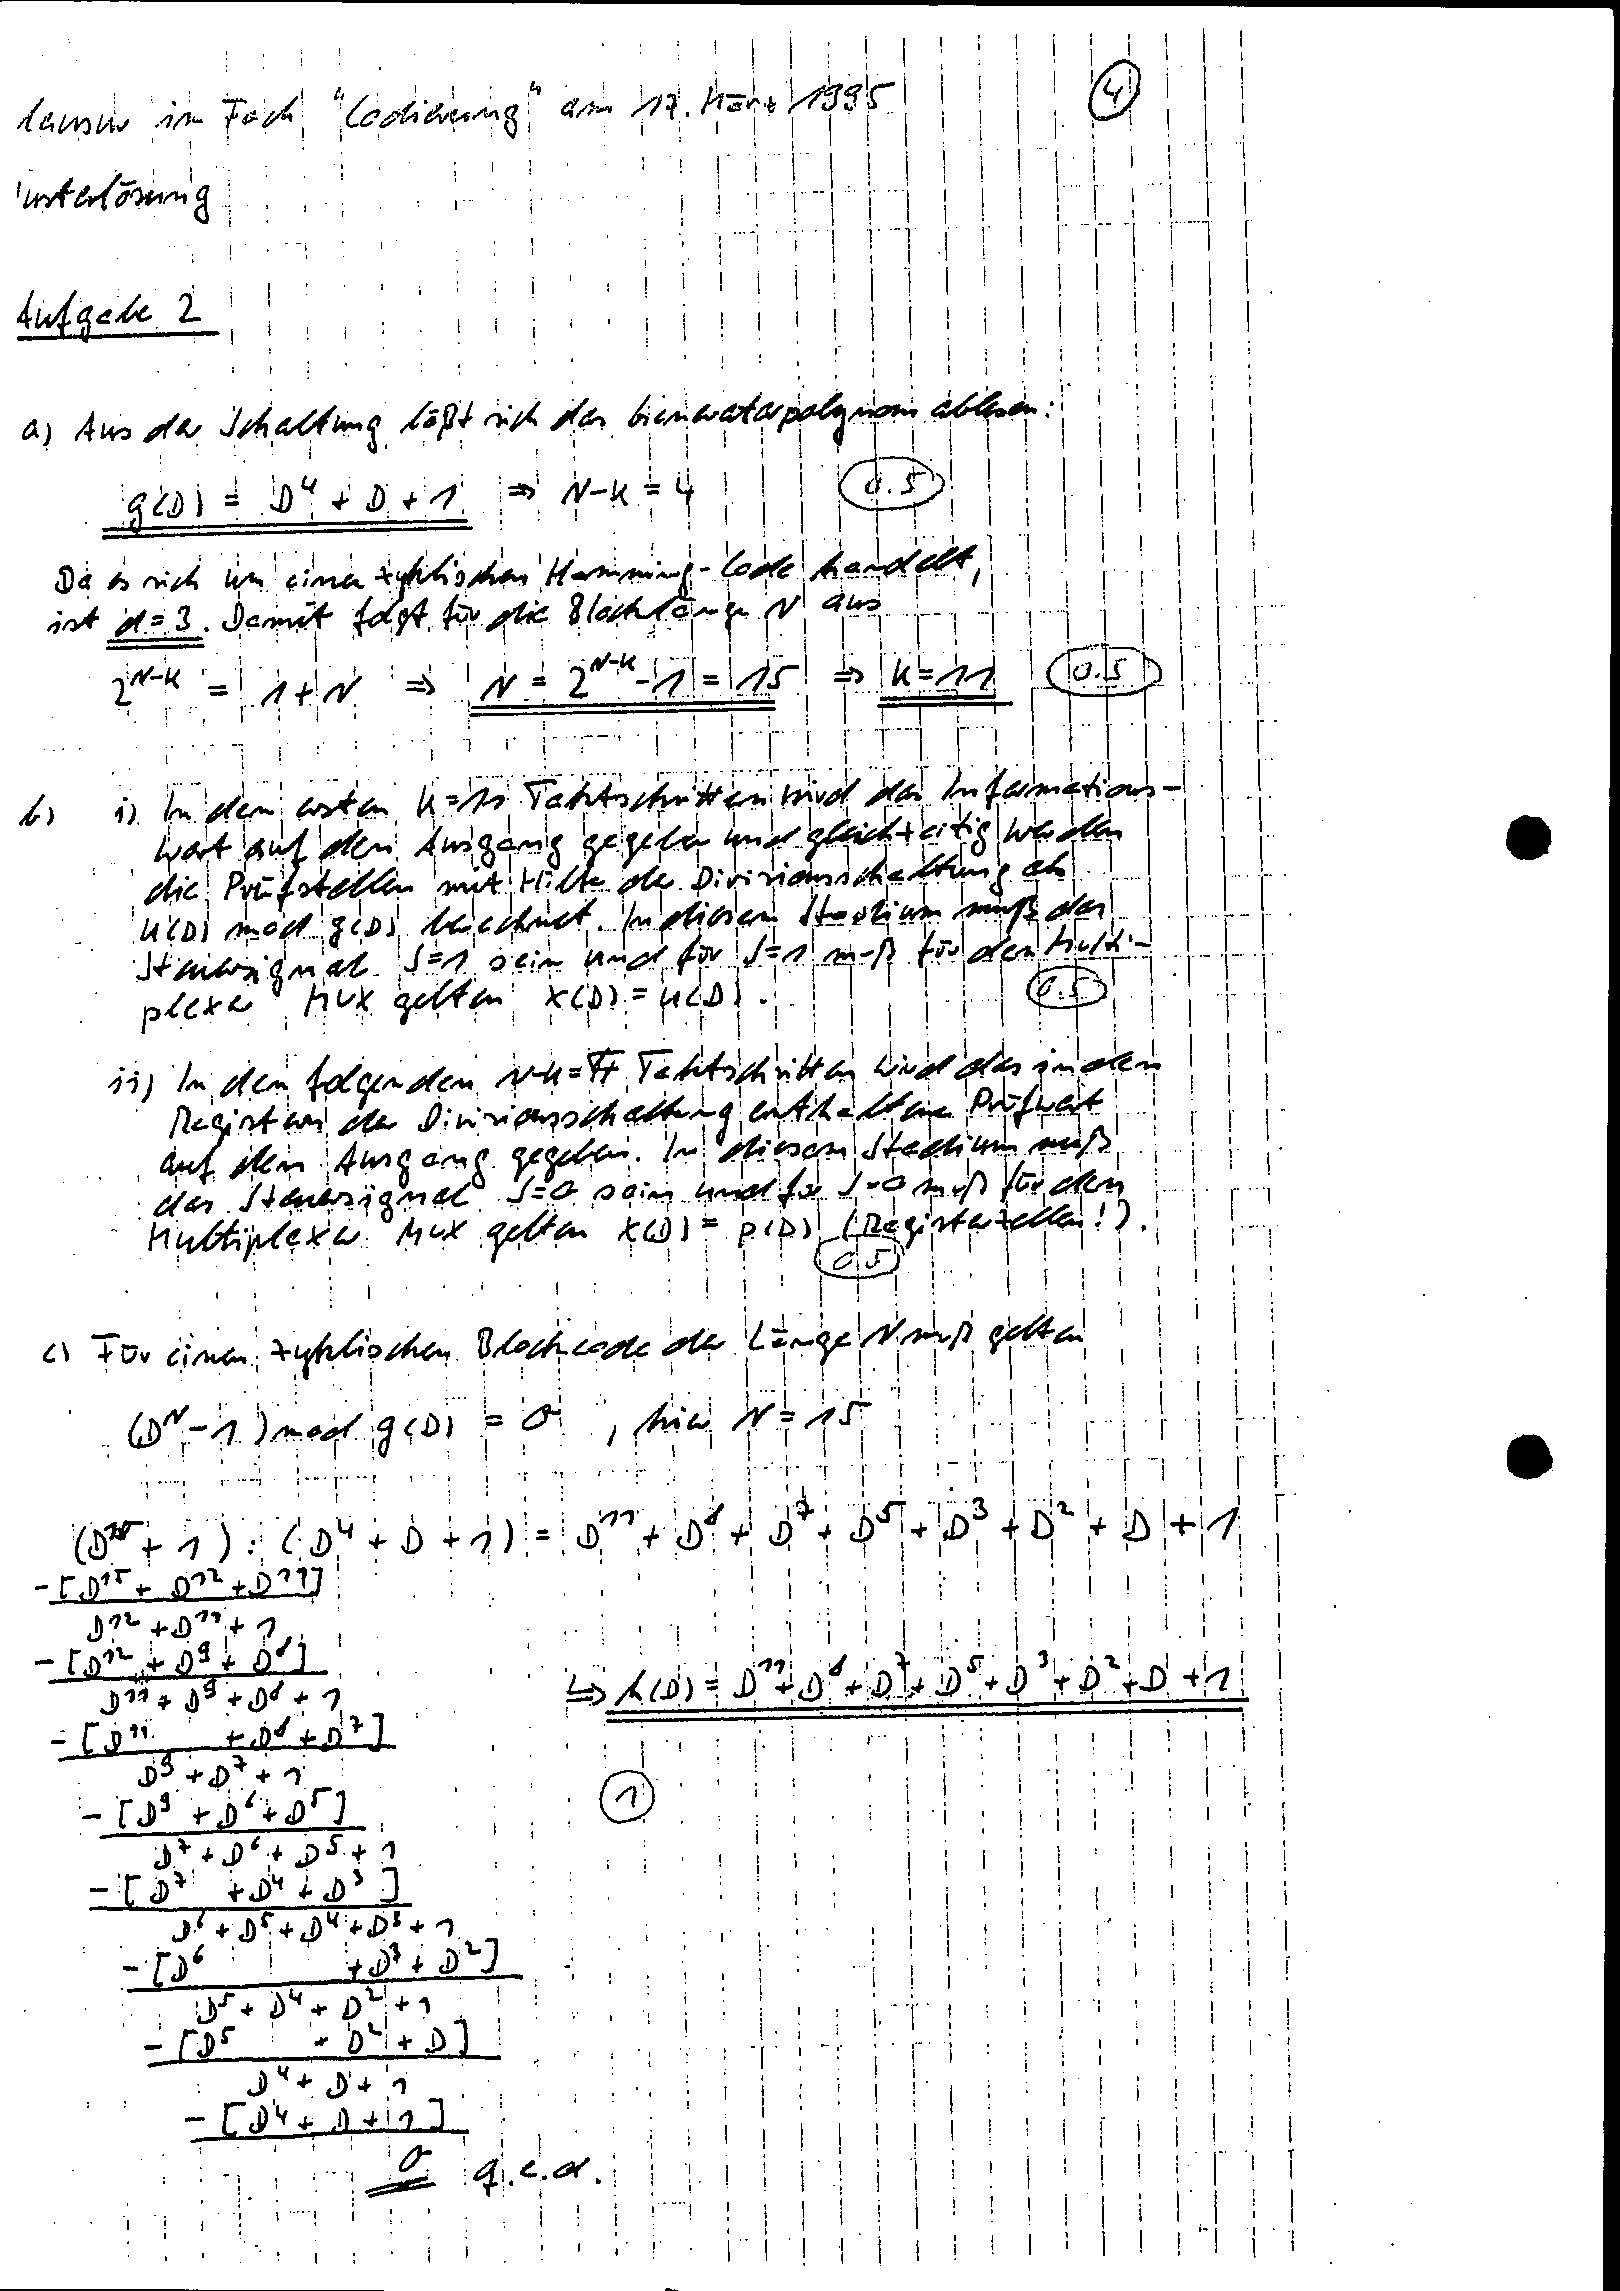 lausur im Fach "Codierung" am 17. März 1995 (4)
usterlösung
Aufgabe 2
a) Aus der Schaltung läßt sich das Generatorpolynom ablesen:
g(D) = D⁴ + D + 1 ⇒ N-K = 4 (0.5)
Da es sich um einen zyklischen Hamming-Code handelt,
ist d=3. Damit folgt für die Blocklänge N aus
2^(N-K) = 1+N ⇒ N = 2^(N-K) - 1 = 15 ⇒ K=11 (0.5)
b) i) In den ersten K=11 Taktschritten wird das Informations-
wort auf den Ausgang gegeben und gleichzeitig werden
die Prüfstellen mit Hilfe der Divisionsschaltung als
u(D) mod g(D) berechnet. In diesem Stadium muß das
Steuersignal S=1 sein und für S=1 muß für den Multi-
plexer MUX gelten x(D) = u(D). (0.5)
ii) In den folgenden N-K=4 Taktschritten wird das in den
Registern der Divisionsschaltung enthaltene Prüfwort
auf den Ausgang gegeben. In diesem Stadium muß
das Steuersignal S=0 sein und für S=0 muß für den
Multiplexer MUX gelten x(D) = p(D) (Registerzellen!).
(0.5)
c) Für einen zyklischen Blockcode der Länge N muß gelten
(D^N - 1) mod g(D) = 0 , hier N = 15
(D¹⁵ + 1) : (D⁴ + D + 1) = D¹¹ + D⁸ + D⁷ + D⁵ + D³ + D² + D + 1
-[D¹⁵ + D¹² + D¹¹]
D¹² + D¹¹ + 1
-[D¹² + D⁹ + D⁸]
D¹¹ + D⁹ + D⁸ + 1
↳ h(D) = D¹¹ + D⁸ + D⁷ + D⁵ + D³ + D² + D + 1
-[D¹¹ + D⁸ + D⁷]
D⁹ + D⁷ + 1
(1)
-[D⁹ + D⁶ + D⁵]
D⁷ + D⁶ + D⁵ + 1
-[D⁷ + D⁴ + D³]
D⁶ + D⁵ + D⁴ + D³ + 1
-[D⁶ + D³ + D²]
D⁵ + D⁴ + D² + 1
-[D⁵ + D² + D]
D⁴ + D + 1
-[D⁴ + D + 1]
0 q.e.d.